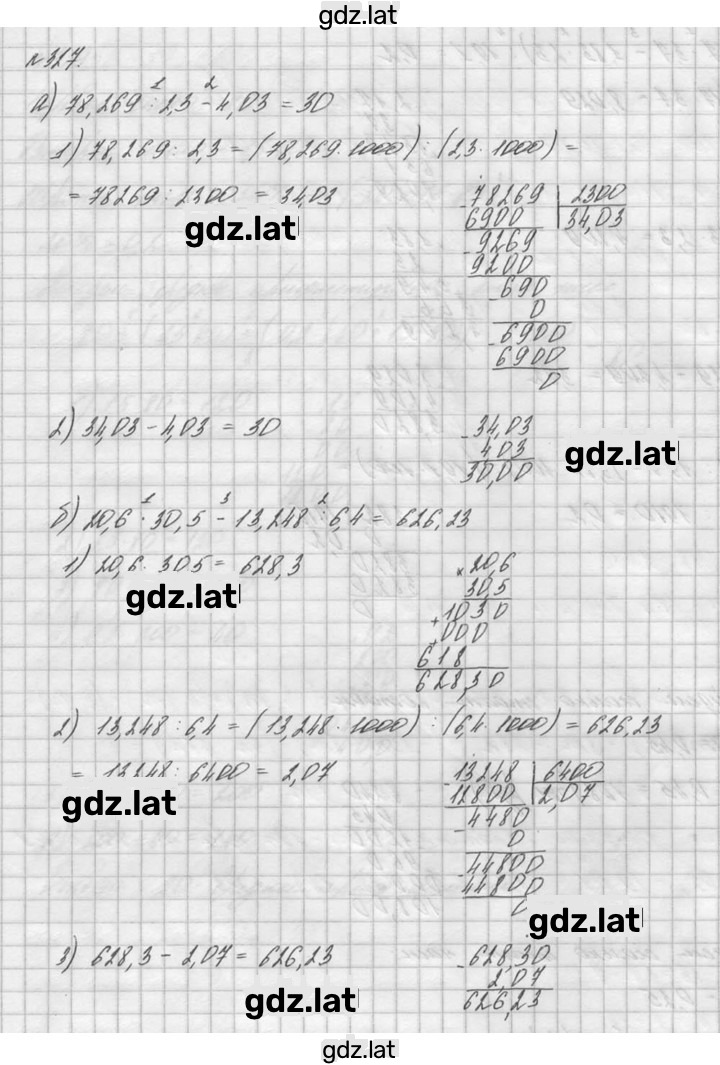 gdz.lat
№327.
1 2
а) 78,269 : 2,3 - 4,03 = 30
1) 78,269 : 2,3 = (78,269 · 1000) : (2,3 · 1000) =
= 78269 : 2300 = 34,03
gdz.lat
-78269 | 2300
6900 | 34,03
-9269
9200
-690
0
-6900
6900
0
2) 34,03 - 4,03 = 30
-34,03
4,03
30,00
gdz.lat
1 3 2
б) 20,6 · 30,5 - 13,248 : 6,4 = 626,23
1) 20,6 · 30,5 = 628,3
gdz.lat
×20,6
30,5
+1030
+000
618
628,30
2) 13,248 : 6,4 = (13,248 · 1000) : (6,4 · 1000) = 626,23
= 13248 : 6400 = 2,07
gdz.lat
-13248 | 6400
12800 | 2,07
-4480
0
-44800
44800
0
gdz.lat
3) 628,3 - 2,07 = 626,23
gdz.lat
-628,30
2,07
626,23
gdz.lat